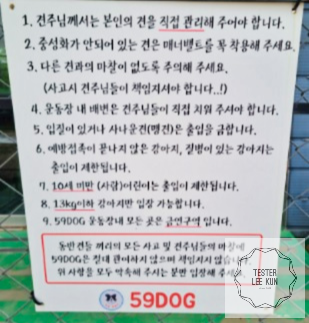 1. 견주님께서는 본인의 견을 직접 관리해 주어야 합니다.
2. 중성화가 안되어 있는 견은 매너벨트를 꼭 착용해 주세요.
3. 다른 견과의 마찰이 없도록 주의해 주세요.
(사고시 견주님들이 책임지셔야 합니다..!)
4. 운동장 내 배변은 견주님들이 직접 치워 주셔야 합니다.
5. 입질이 있거나 사나운견(맹견)은 출입을 금합니다.
6. 예방접종이 끝나지 않은 강아지, 질병이 있는 강아지는
출입이 제한됩니다.
7. 10세 미만 (사람)어린이는 출입이 제한됩니다.
8. 13kg이하 강아지만 입장 가능합니다.
9. 59DOG 운동장내 모든 곳은 금연구역 입니다.
동반견들 끼리의 모든 사고 및 견주님들의 마찰에
59DOG은 절대 관여하지 않으며 책임지지 않습니다
위 사항을 모두 약속해 주시는 분만 입장해 주세요.
59DOG
TESTER
LEE KUN